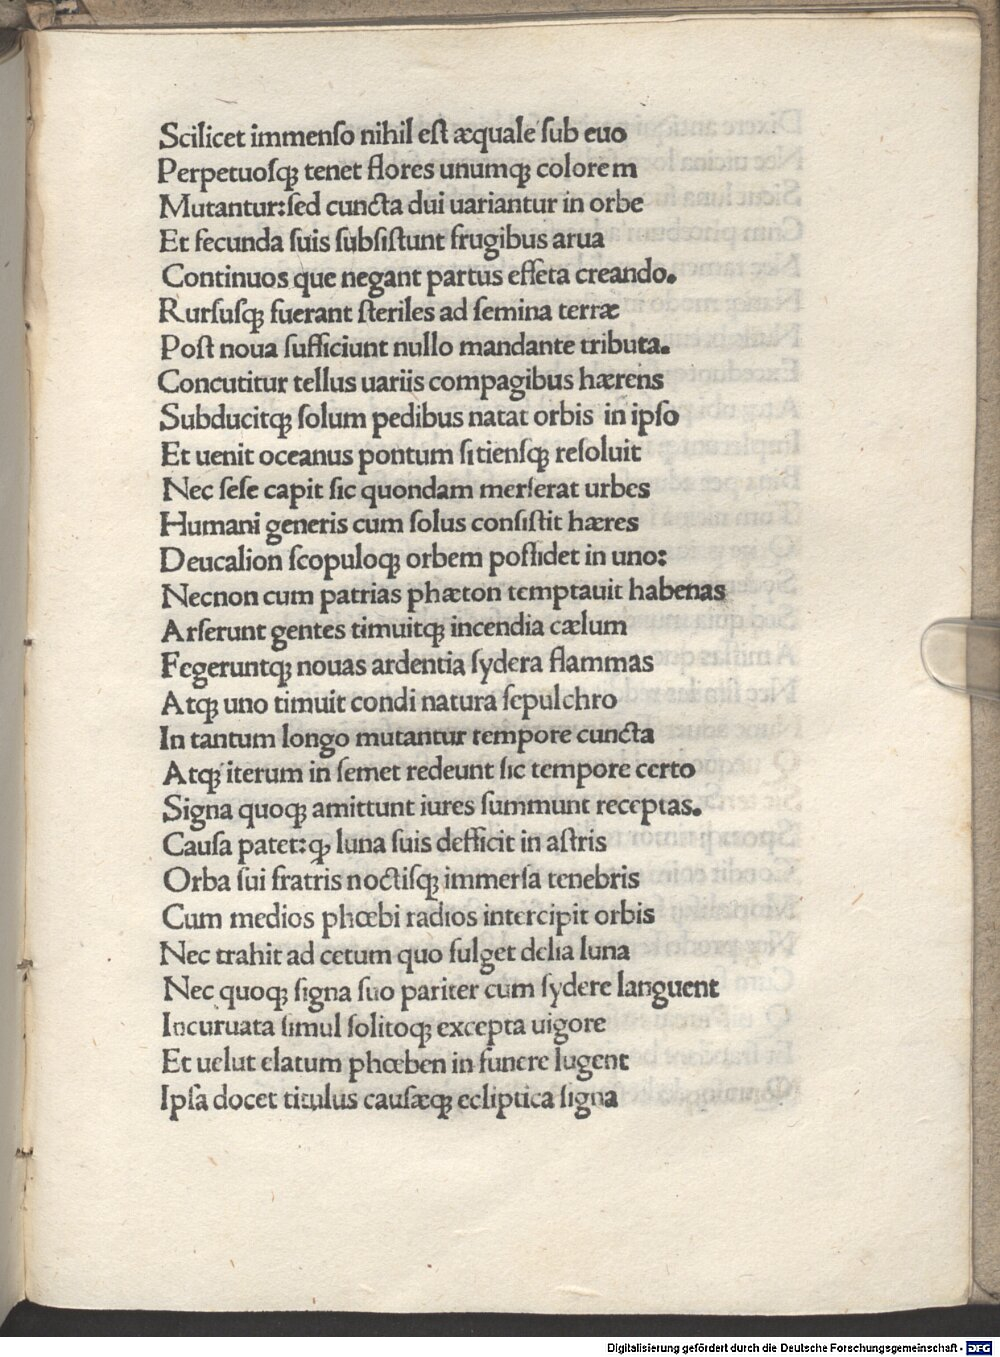 Scilicet immenſo nihil eſt æquale ſub euo
Perpetuoſqꝫ tenet flores unumqꝫ colorem
Mutantur:ſed cuncta dui uariantur in orbe
Et fecunda ſuis ſubſiſtunt frugibus arua
Continuos que negant partus effeta creando.
Rurſuſqꝫ fuerant ſteriles ad ſemina terræ
Poſt noua ſufficiunt nullo mandante tributa.
Concutitur tellus uariis compagibus hærens
Subducitqꝫ ſolum pedibus natat orbis in ipſo
Et uenit oceanus pontum ſitienſqꝫ reſoluit
Nec ſeſe capit ſic quondam merſerat urbes
Humani generis cum ſolus conſiſtit hæres
Deucalion ſcopuloqꝫ orbem poſſidet in uno:
Necnon cum patrias phæton temptauit habenas
Arſerunt gentes timuitqꝫ incendia cælum
Fegeruntqꝫ nouas ardentia ſydera flammas
Atqꝫ uno timuit condi natura ſepulchro
In tantum longo mutantur tempore cuncta
Atqꝫ iterum in ſemet redeunt ſic tempore certo
Signa quoqꝫ amittunt iures ſummunt receptas.
Cauſa patet:qꝫ luna ſuis defficit in aſtris
Orba ſui fratris noctiſqꝫ immerſa tenebris
Cum medios phœbi radios intercipit orbis
Nec trahit ad cetum quo fulget delia luna
Nec quoqꝫ ſigna ſuo pariter cum ſydere languent
Incuruata ſimul ſolitoqꝫ excepta uigore
Et uelut elatum phœben in funere lugent
Ipſa docet titulus cauſæqꝫ ecliptica ſigna
Digitalisierung gefördert durch die Deutsche Forschungsgemeinschaft - DFG